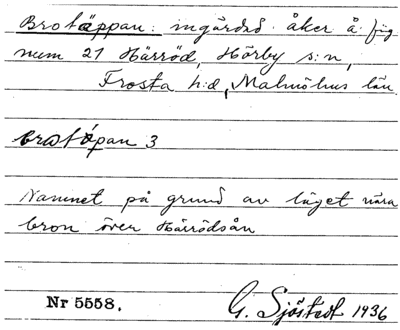 Brotäppan: ingärdad åker å äg
num 21 Härröd, Hörby s:n,
Frosta h:d, Malmöhus län
brotápan 3
Namnet på grund av läget nära
bron över Härrödsån
Nr 5558. G. Sjöstedt 1936